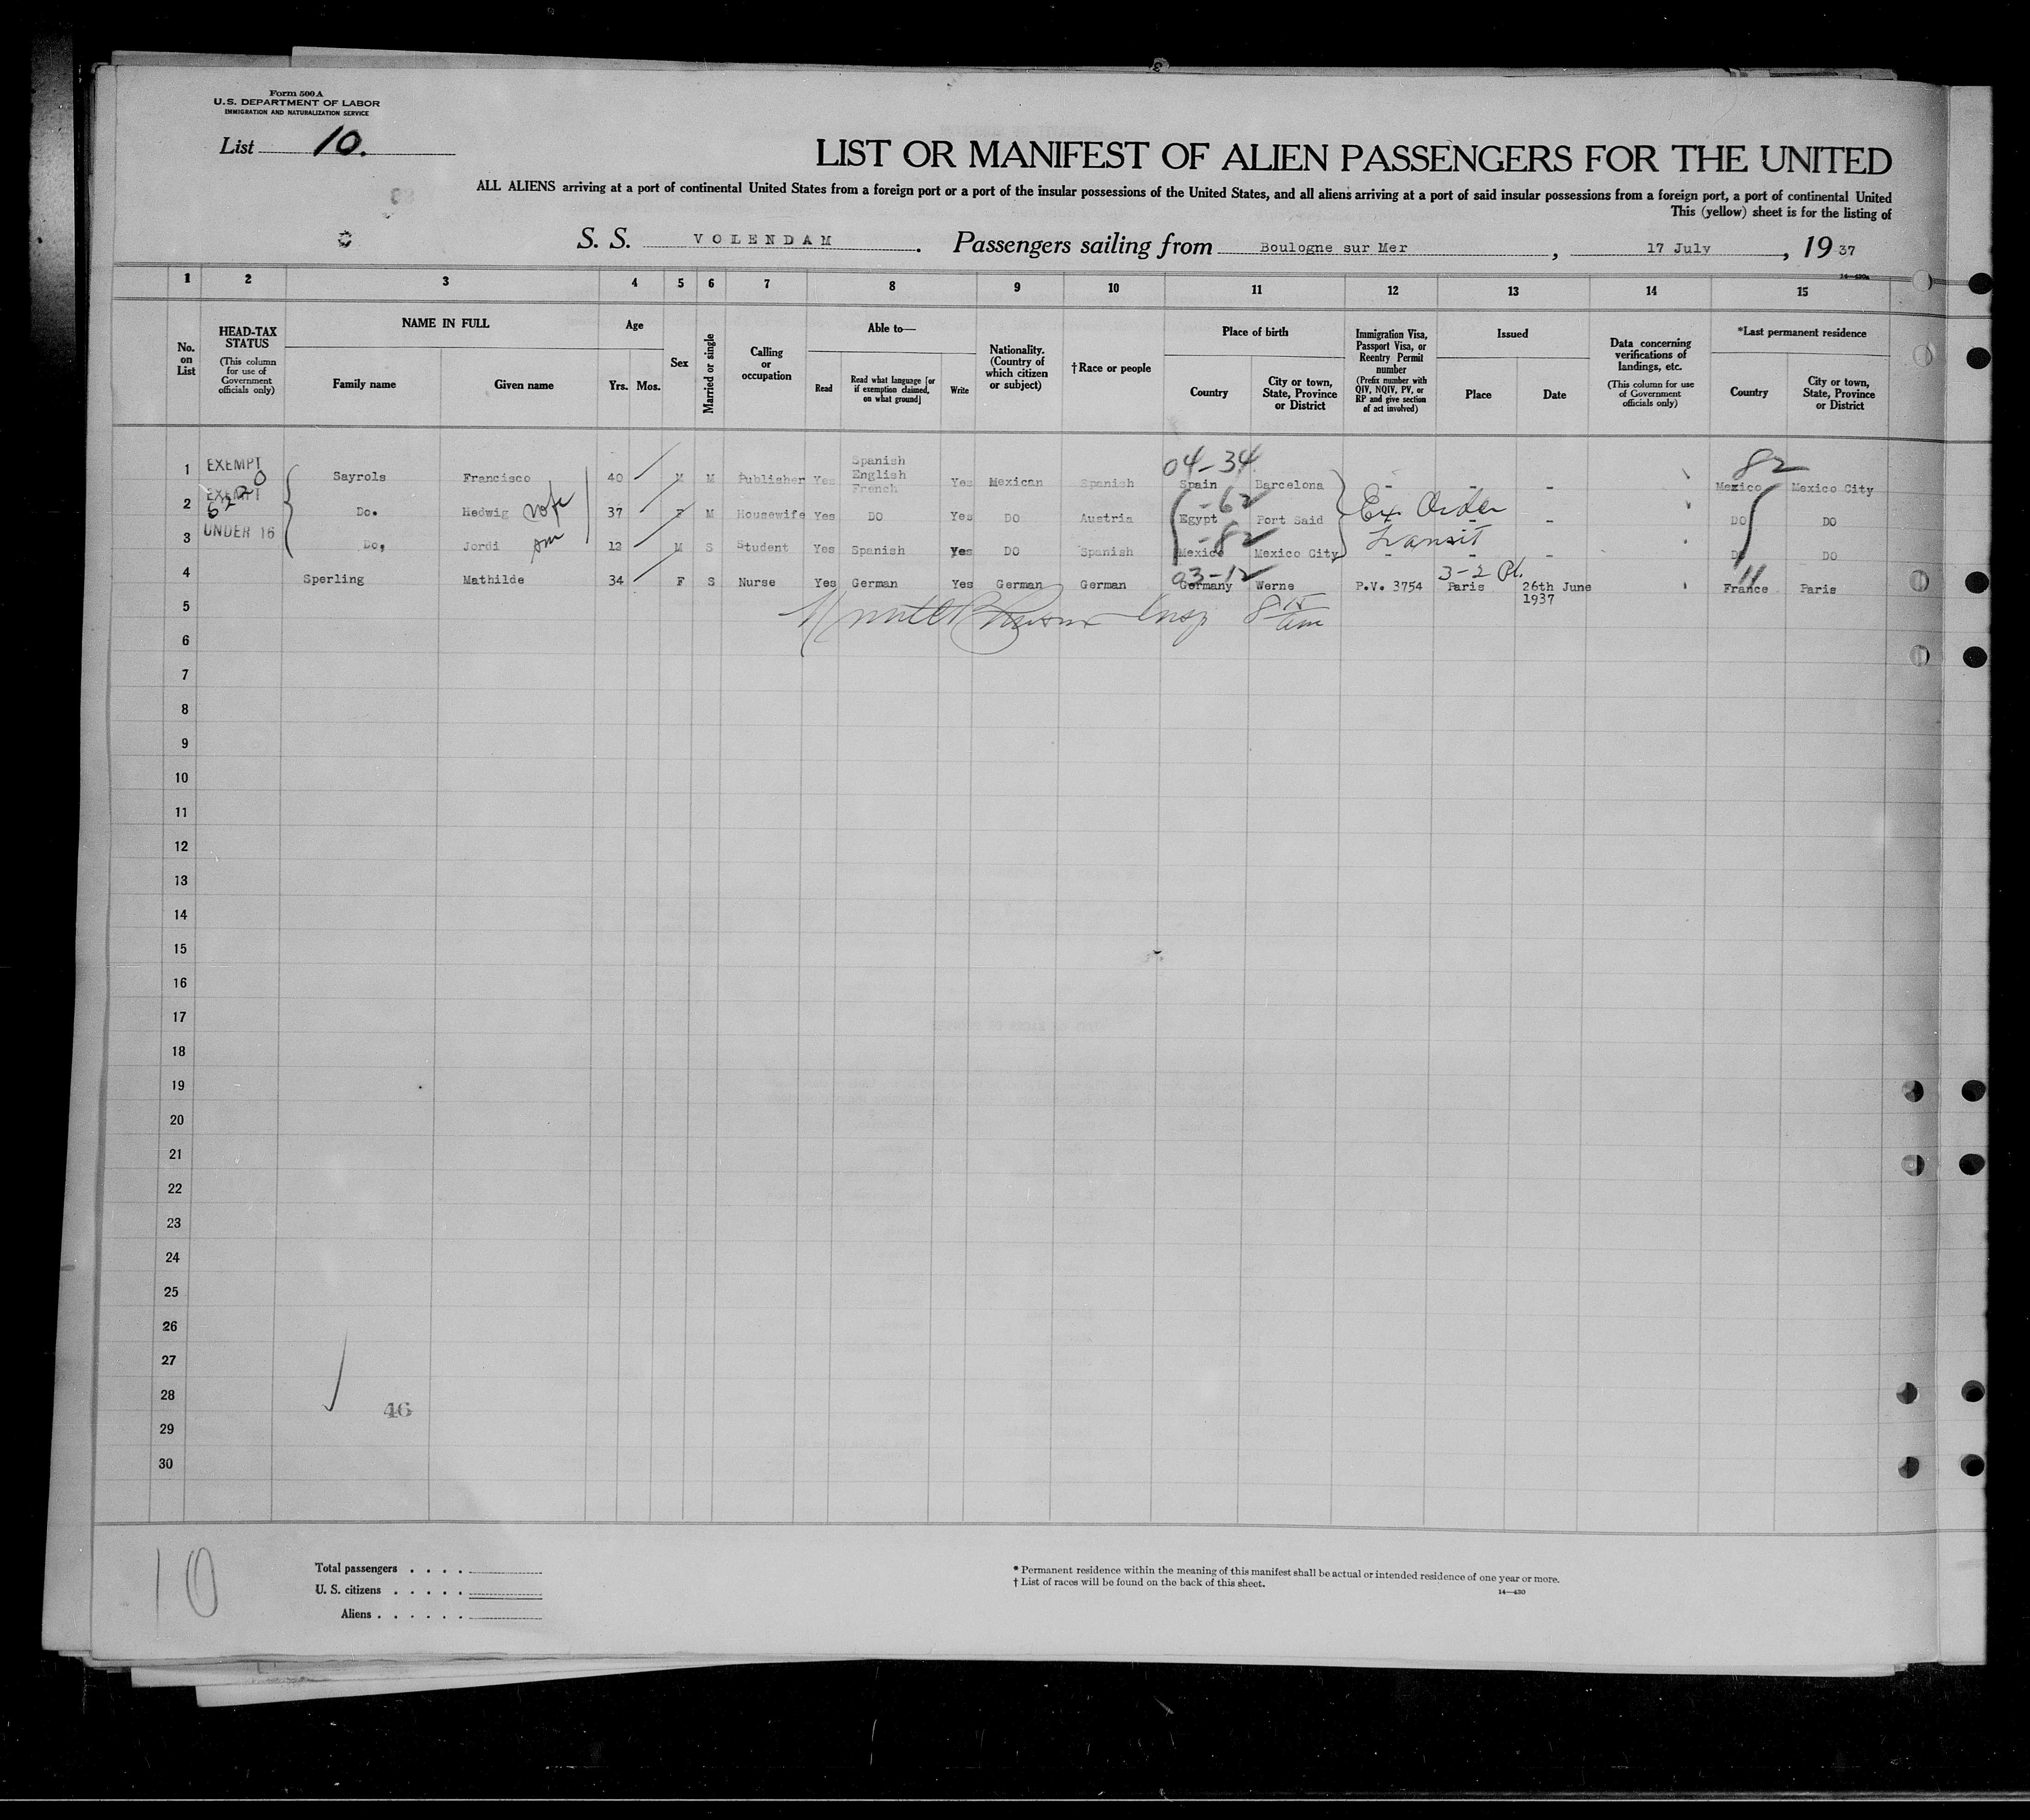 Form 500 A
U.S. DEPARTMENT OF LABOR
IMMIGRATION AND NATURALIZATION SERVICE
List 10.
LIST OR MANIFEST OF ALIEN PASSENGERS FOR THE UNITED
ALL ALIENS arriving at a port of continental United States from a foreign port or a port of the insular possessions of the United States, and all aliens arriving at a port of said insular possessions from a foreign port, a port of continental United
This (yellow) sheet is for the listing of
S. S. VOLENDAM. Passengers sailing from Boulogne sur Mer, 17 July, 1937
14—430a
1 2 3 4 5 6 7 8 9 10 11 12 13 14 15
No. on List
HEAD-TAX STATUS
(This column for use of Government officials only)
NAME IN FULL
Family name Given name
Age
Yrs. Mos.
Sex
Married or single
Calling or occupation
Able to—
Read
Read what language [or if exemption claimed, on what ground]
Write
Nationality. (Country of which citizen or subject)
†Race or people
Place of birth
Country
City or town, State, Province or District
Immigration Visa, Passport Visa, or Reentry Permit number
(Prefix number with QIV, NQIV, PV, or RP and give section of act involved)
Issued
Place Date
Data concerning verifications of landings, etc.
(This column for use of Government officials only)
*Last permanent residence
Country
City or town, State, Province or District
04-34 82
1 EXEMPT Sayrols Francisco 40 M M Publisher Yes Spanish English French Yes Mexican Spanish Spain Barcelona - - - Mexico Mexico City
-62
2 EXEMPT Do. Hedwig wife 37 F M Housewife Yes DO Yes DO Austria Egypt Port Said Ex Order - DO DO
6220
-82
3 UNDER 16 Do, Jordi son 12 M S Student Yes Spanish Yes DO Spanish Mexico Mexico City Transit - - - DO DO
03-12 3-2 11
4 Sperling Mathilde 34 F S Nurse Yes German Yes German German Germany Werne P.V. 3754 Paris 26th June 1937 France Paris
5 Insp 8 15 am
6
7
8
9
10
11
12
13
14
15
16
17
18
19
20
21
22
23
24
25
26
27
28
46
29
30
10
Total passengers . . . .
U. S. citizens . . . . .
Aliens . . . . . .
* Permanent residence within the meaning of this manifest shall be actual or intended residence of one year or more.
† List of races will be found on the back of this sheet.
14—430